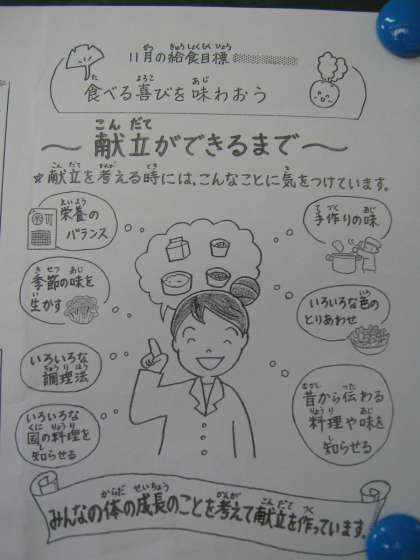 11月の給食目標
食べる喜びを味わおう
～献立ができるまで～
☆献立を考える時には、こんなことに気をつけています。
栄養の
バランス
季節の味を
生かす
いろいろな
調理法
いろいろな
国の料理を
知らせる
手作りの味
いろいろな色の
とりあわせ
昔から伝わる
料理や味を
知らせる
みんなの体の成長のことを考えて献立を作っています。